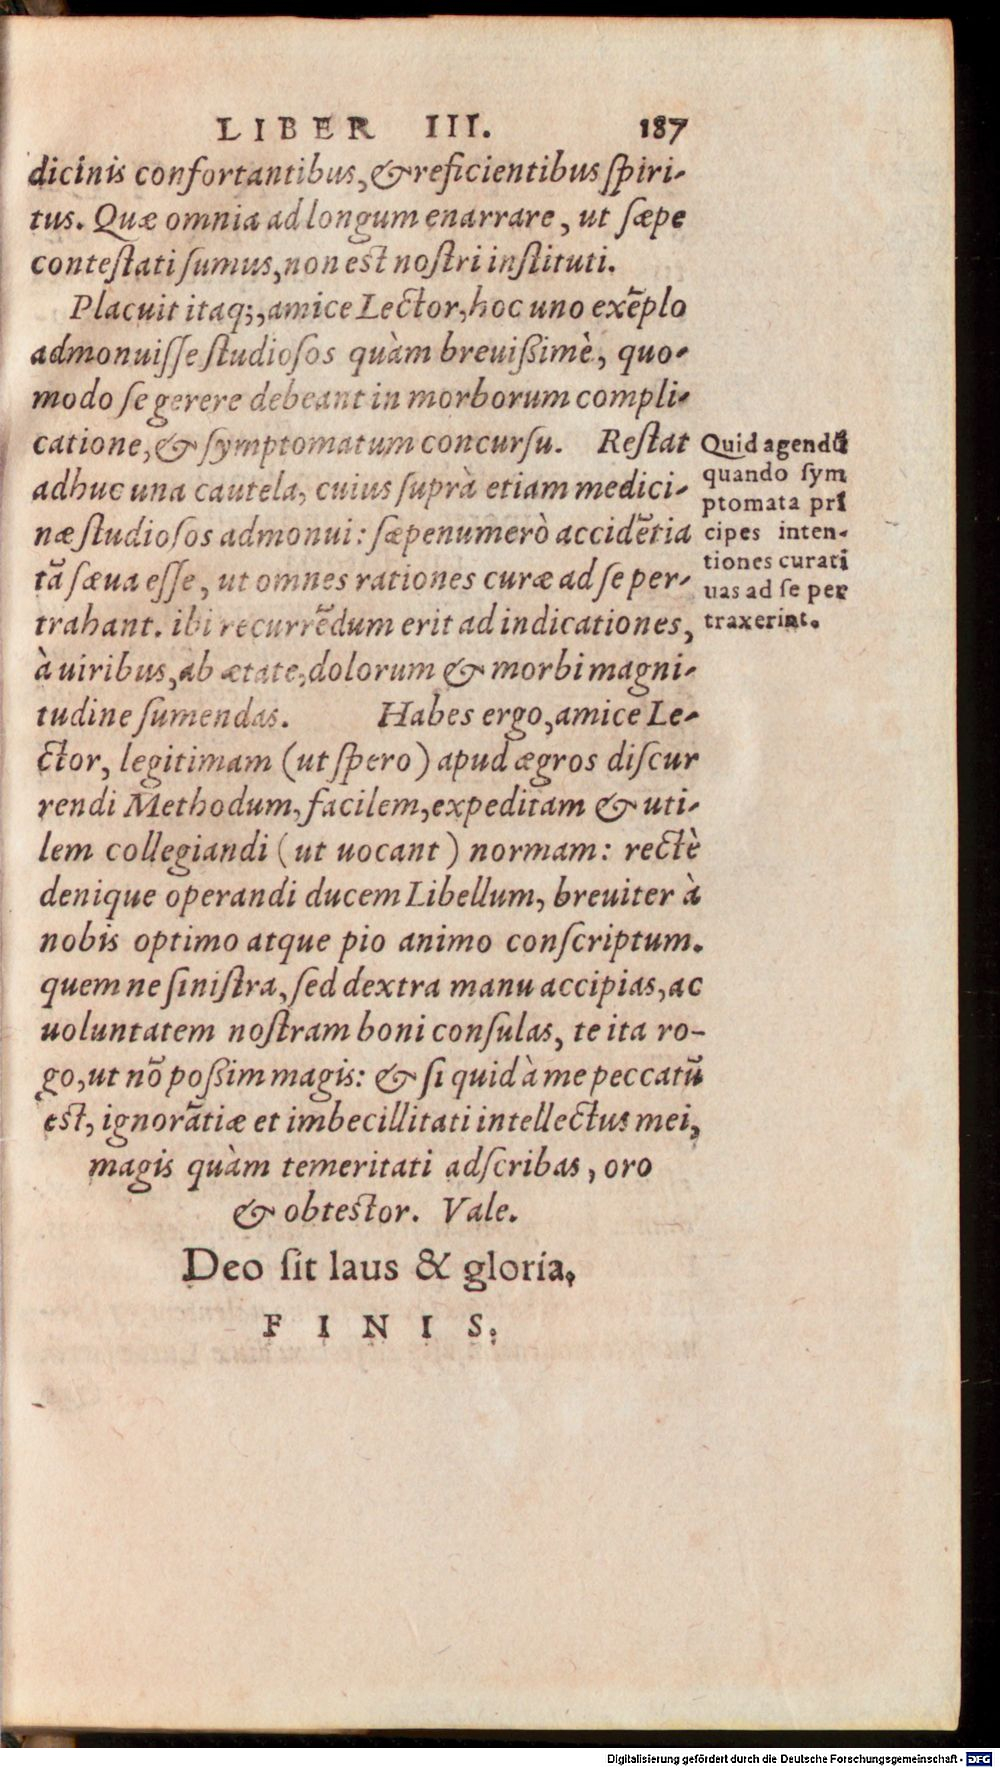 LIBER III. 187
dicinis confortantibus, & reficientibus ſpiri-
tus. Quæ omnia ad longum enarrare, ut ſæpe
conteſtati ſumus, non est noſtri inſtituti.
Placuit itaq;, amice Lector, hoc uno exẽplo
admonuiſſe ſtudioſos quàm breuißimè, quo-
modo ſe gerere debeant in morborum compli-
catione, & ſymptomatum concurſu. Reſtat
adhuc una cautela, cuius ſuprà etiam medici-
næ ſtudioſos admonui: ſæpenumerò accidẽtia
tã ſæua eſſe, ut omnes rationes curæ ad ſe per-
trahant. ibi recurrẽdum erit ad indicationes,
à uiribus, ab ætate, dolorum & morbi magni-
tudine ſumendas. Habes ergo, amice Le-
ctor, legitimam (ut ſpero) apud ægros diſcur
rendi Methodum, facilem, expeditam & uti-
lem collegiandi (ut uocant) normam: rectè
denique operandi ducem Libellum, breuiter à
nobis optimo atque pio animo conſcriptum.
quem ne ſiniſtra, ſed dextra manu accipias, ac
uoluntatem noſtram boni conſulas, te ita ro-
go, ut nõ poßim magis: & ſi quid à me peccatũ
est, ignorãtiæ et imbecillitati intellectus mei,
magis quàm temeritati adſcribas, oro
& obtestor. Vale.
Deo ſit laus & gloria.
FINIS.
Quid agendũ
quando ſym
ptomata prī
cipes inten-
tiones curati
uas ad ſe per
traxerint.
Digitalisierung gefördert durch die Deutsche Forschungsgemeinschaft - DFG